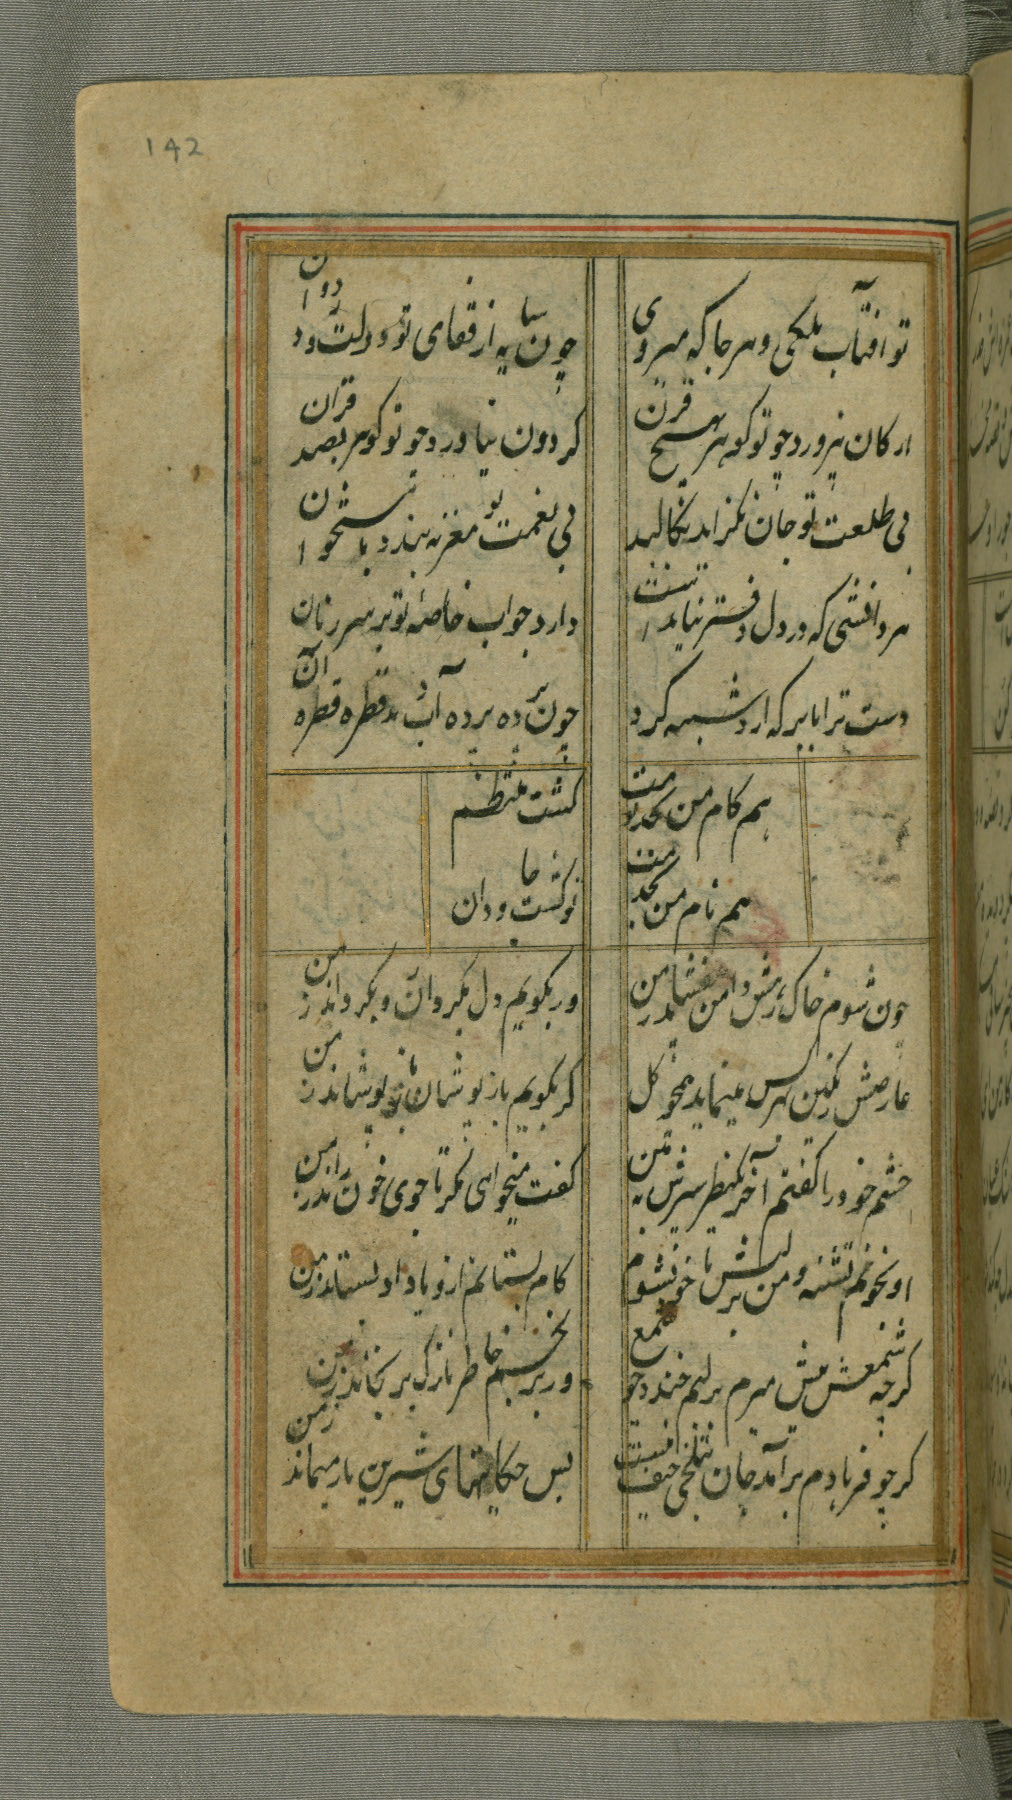 142
تو آفتاب ملکی و هر جا که میروی
چون سایه از قفای تو دولت دوان دود
از کان نپرورد چو تو گوهر بهیچ قرن
گردون نیاورد چو تو گوهر بصد قران
بی طلعت تو جان نگزاید بکالبد
بی نعمت تو مغز نبندد باستخوان
دارد جواب خاصه تو بر سر زبان
دست ترا بابر که یارد شبیه کرد
چون بدره بدره این دهد و قطره قطره آن
هم کام من بخدمت تو
گشت منتظم
هم نام من بخدمت
تو گشت جاودان
چون شوم خاک رهش دامن بیفشاند ز من
ور بگویم دل بگردان رو بگرداند ز من
عارض رنگین بهر کس مینماید همچو گل
گر بگویم باز پوشان باز پوشاند ز من
چشم خود را گفتم آخر یک نظر سیرش به بین
گفت میخواهی مگر تا جوی خون راند ز من
او بخونم تشنه و من بر لبش تا چون شود
کام بستانم ازو یا داد بستاند ز من
گر چو شمعش پیش میرم بر لبم خندد چو شمع
ور برنجم خاطر نازک برنجاند ز من
گر چو فرهادم برآمد جان بتلخی حیف نیست
بس حکایتهای شیرین باز میماند ز من